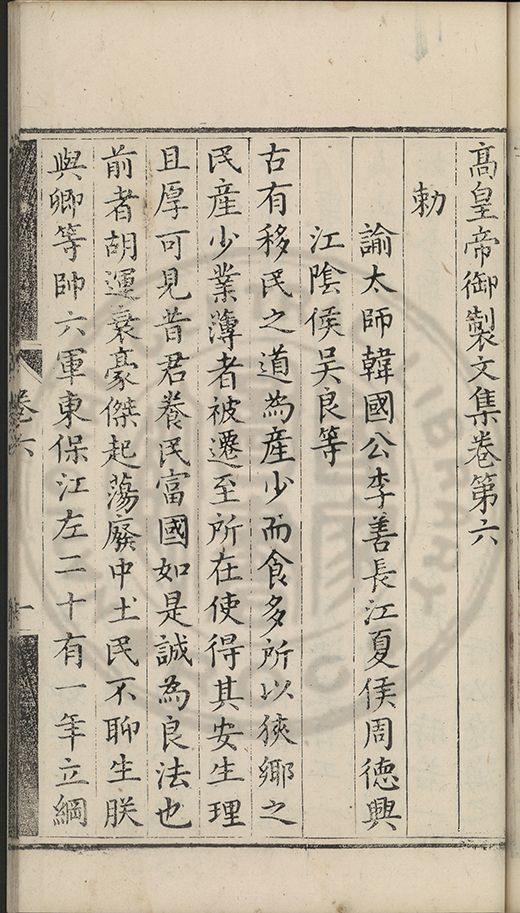 高皇帝御製文集卷第六
勅
諭太師韓國公李善長江夏侯周德興
江陰侯吴良等
古有移民之道為産少而食多所以狹鄉之
民産少業薄者被遷至所在使得其安生理
且厚可見昔君養民富國如是誠為良法也
前者胡運衰豪傑起蕩廢中土民不聊生朕
與卿等帥六軍東保江左二十有一年立綱
卷六
一